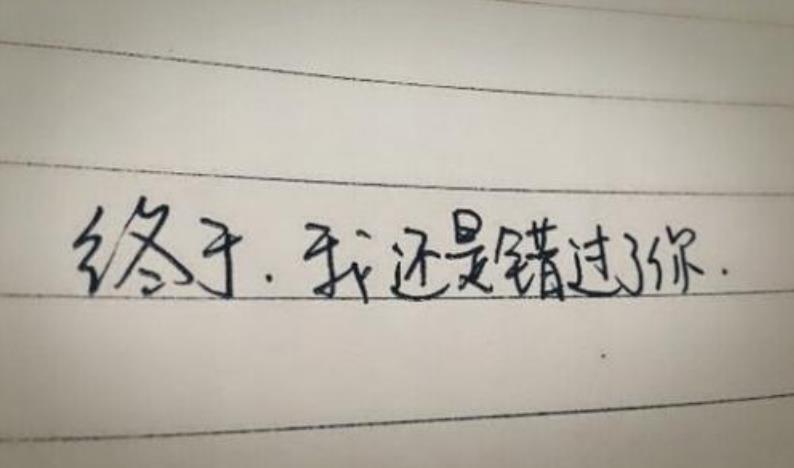 终于.我还是错过了你.